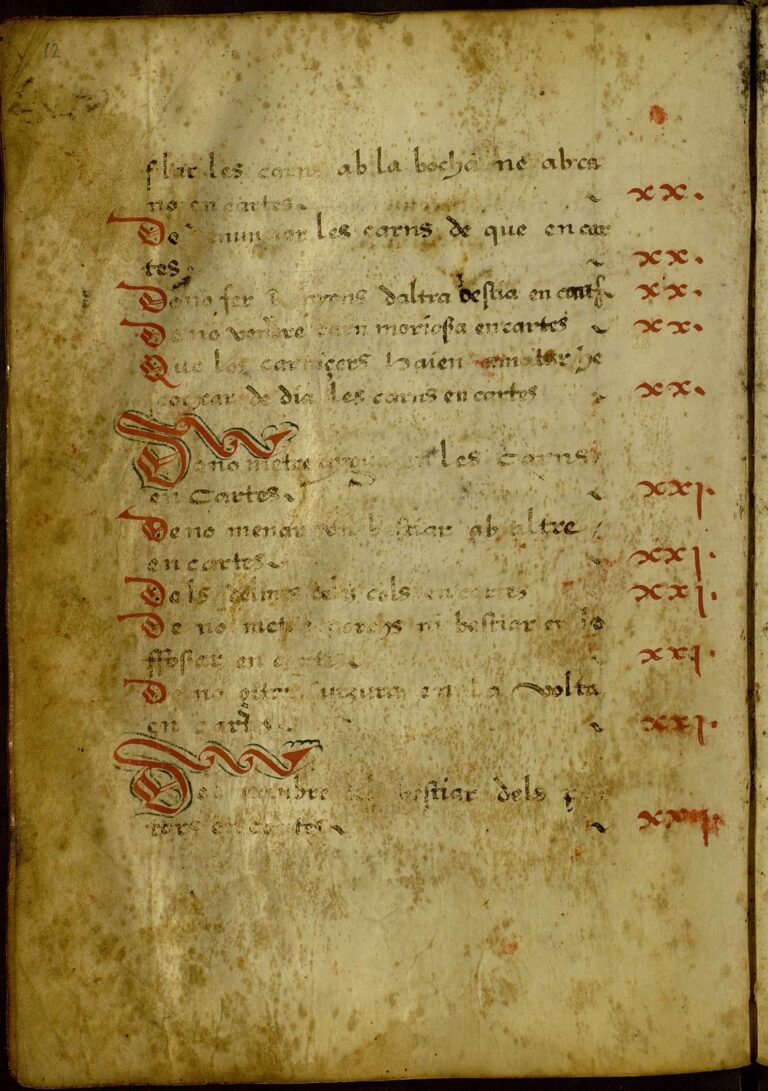 12
flar les carns ab la bocha ne ab ca
no en cartes xx.
De nunciar les carns de que en car
tes xx.
De no fer daltra bestia en cart xx.
De no vendre carn moriosa en cartes xx.
Que los carnicers haien a matar he
de dia les carns en cartes xx.
De no metre les carns
en Cartes xxj.
De no menar un bestiar ab altre
en cartes xxj.
Dels delmes dels cols en cartes xxj.
De no metre porchs ni bestiar en lo
ffossar en cartes xxj.
De no gitar en la volta
en cartes xxj.
Del nombre del bestiar dels
en cartes